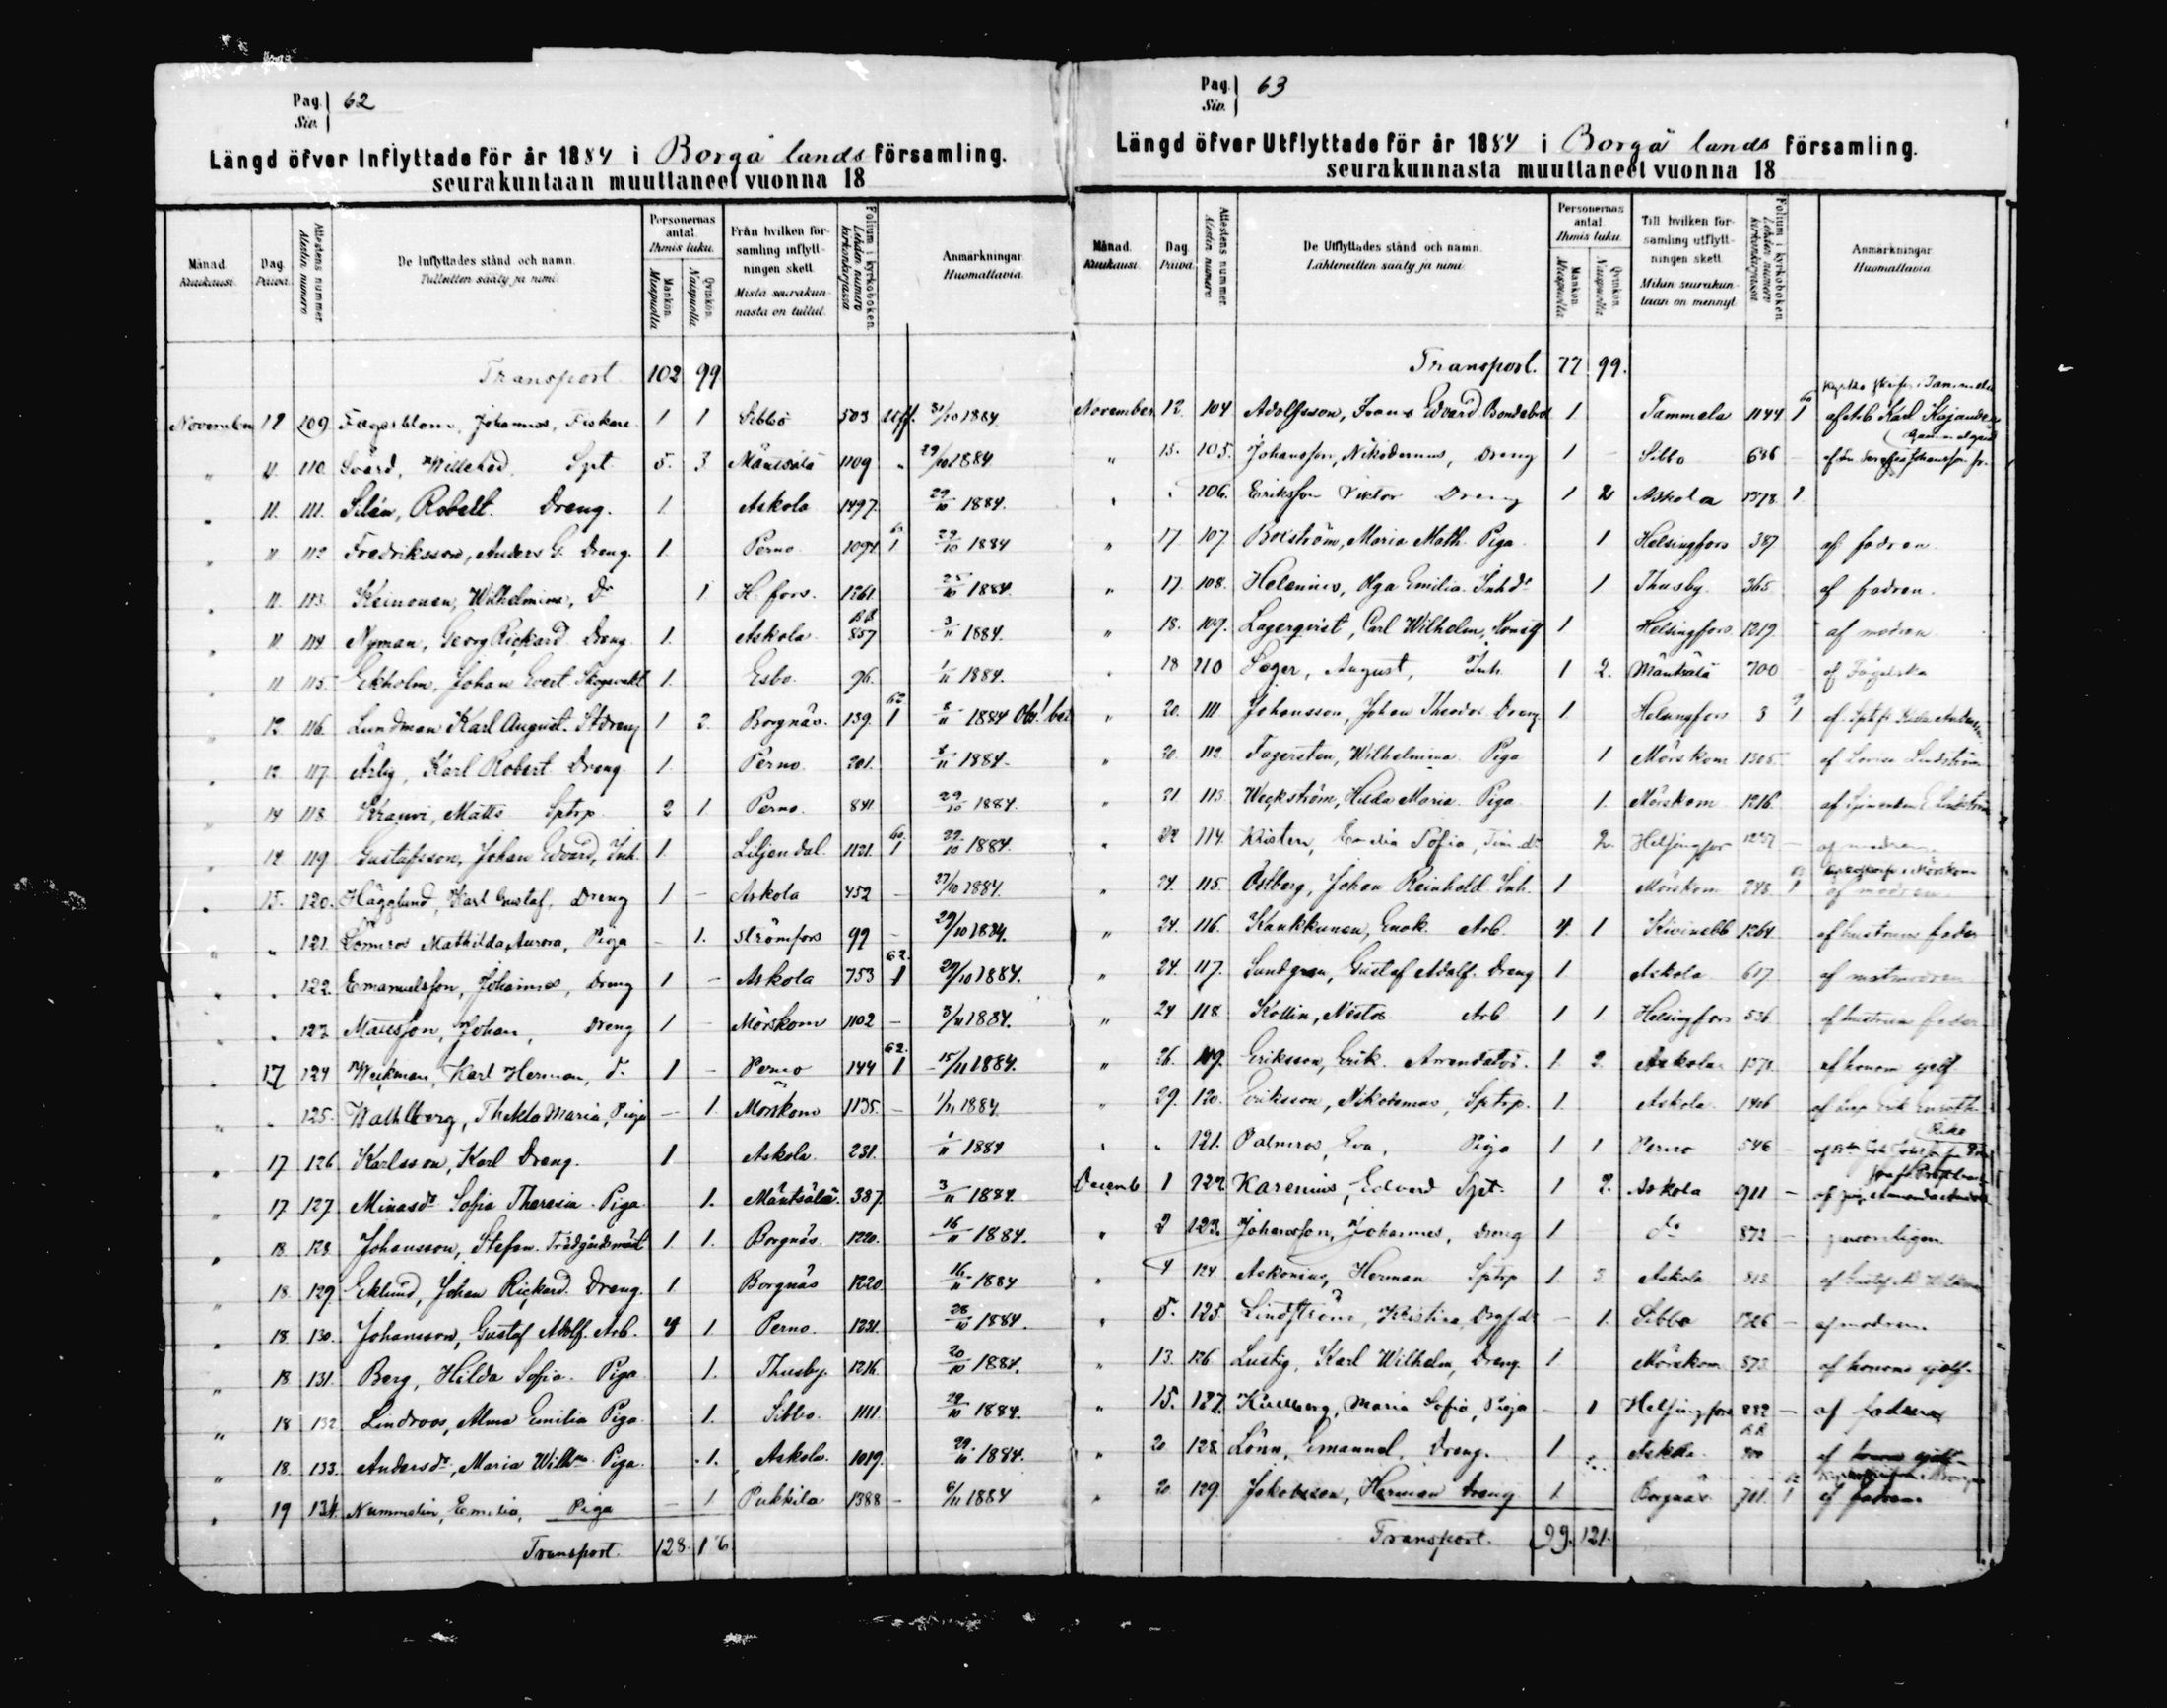 Pag. 62
Siv.
Längd öfver Inflyttade för år 1884 i Borgå lands församling.
seurakuntaan muuttaneet vuonna 18
Månad. Kuukausi. Dag. Päivä. Attestens nummer. Alestin numero De Inflyttades stånd och namn. Tulleitten sääty ja nimi. Personernas antal. Ihmis luku. Mankön. Miespuolia Qvinkön. Naispuolia Från hvilken församling inflyttningen skett. Mistä seurakunnasta on tullut. Folium i kyrkoboken. Lehden numero kirkonkirjassa Anmärkningar. Huomattavia
Transport 102 99
November 12 109 Fagerblom, Johannes, Fiskare 1 1 Sibbo 503 utf. 31/10 1884
" 11. 110. Svärd, Willehad. Spt. 5. 3 Mäntsälä 1109 " 29/10 1884
" 11. 111. Silén, Robert. Dreng. 1. Askola 1497. 29/10 1884.
" 11 112 Fredriksson, Anders G. Dreng. 1. Perno. 1094 1 29/10 1884
" 11. 113. Keinonen, Wilhelmina, Dr 1 H. fors. 1261. 25/10 1884.
" 11 114 Nyman, Georg Rickard Dreng 1. Askola. 857 3/11 1884.
" 11 115. Ekholm, Johan Evert. Skogsvakt 1. Esbo. 96. 1/11 1884.
" 12 116. Lundman Karl August. Stdreng 1 2. Borgnäs. 139. 62 1 8/11 1884 Obs!
" 12 117. Ärlig, Karl Robert Dreng. 1. Perno. 201. 1884.
" 14 118. Krauvi, Matts Sptrp. 2 1. Perno. 841. 29/10 1884.
" 14 119 Gustafsson, Johan Edvard, Inh. 1. Liljendal. 1121. 60. 1 29/10 1884.
" 15. 120. Hägglund, Karl Gustaf, Dreng 1 - Askola 452 - 27/10 1884.
" " 121. Lönnros Mathilda Aurora, Piga - 1. Strömfors 99 - 29/10 1884.
" " 122. Emanuelsson, Johannes, Dreng 1 - Askola 753 62. 1 29/10 1884.
" " 123 Mattsson, Johan, Dreng 1 - Mörskom 1102 - 3/11 1884.
" 17 124 Weckman, Karl Herman, d. 1 - Perno 144 62. 1 15/11 1884.
" " 125. Wathlberg, Thekla Maria, Piga - 1. Mörskom 1135. - 1/11 1884.
" 17 126 Karlsson, Karl Dreng. 1 Askola. 231. 1/11 1884
" 17 127 Minasdr Sofia Theresia Piga 1. Mäntsälä. 387. 3/11 1884.
" 18. 128 Johansson, Stefan. Trädgårdsmäst 1. 1. Borgnäs. 1220. 16/11 1884.
" 18. 129. Eklund, Johan Rickard. Dreng. 1. Borgnäs 1220. 16/11 1884
" 18. 130. Johansson, Gustaf Adolf. Arb. 4 1 Perno. 1231. 28/10 1884.
" 18. 131. Berg, Hilda Sofia. Piga 1. Thusby. 1216. 20/10 1884.
" 18 132 Lindroos, Alma Emilia Piga. 1. Sibbo. 1111. 29/10 1884.
" 18. 133. Andersdr., Maria Wilhna. Piga. 1. Askola. 1019. 29/10 1884.
" 19 134. Nummelin, Emilia, Piga - 1 Pukkila 1388 - 6/11 1884
Transport. 128. 1 6
Pag. 63
Siv.
Längd öfver Utflyttade för år 1884 i Borgå lands församling.
seurakunnasta muuttaneet vuonna 18
Månad. Kuukausi. Dag. Päivä. Attestens nummer. Alestin numero De Utflyttades stånd och namn. Lähteneitten sääty ja nimi. Personernas antal. Ihmis luku. Mankön. Miespuolia Qvinkön. Naispuolia Till hvilken församling utflyttningen skett. Mihin seurakuntaan on mennyt. Folium i kyrkoboken. Lehden numero kirkonkirjassa Anmärkningar. Huomattavia
Transport. 77 99.
November. 12. 104 Adolfsson, Frans Edvard 1 Tammela 1144 60 1 af Arb Karl Kajander
" 15. 105. Johansson, Nikodemus, Dreng 1 - Sibbo 686 -
" " 106. Eriksson Viktor Dreng 1 2 Askola 1378 1
" 17 107 Boxström, Maria Math. Piga 1 Helsingfors 387 af fadren.
" 17. 108. Helenius, Olga Emilia. Inhdr 1 Thusby. 365 af fadren.
" 18. 109. Lagerqvist, Carl Wilhelm, 1 Helsingfors. 1219 af modren
" 18 110 Seger, August, Inh. 1 2. Mäntsälä 700 - af
" 20. 111 Johansson, Johan Theodor. Dreng. 1. Helsingfors 3 1 af
" 20. 112. Fagersten, Wilhelmina Piga 1 Mörskom 1305. af Lovisa Lindström
" 21. 113. Weckström, Hilda Maria. Piga. 1. Mörskom. 1216. af
" 22 114. Emilia Sofia, 2. Helsingfor 1257 - af modren.
" 24. 115. Östberg, Johan Reinhold. Inh. 1 Mörskom 248. 1 af modren.
" 24. 116. Kankkunen, Enok. Arb. 4. 1 Kivinebb 1264 af hustruns fader
" 24. 117. Sundgren, Gustaf Adolf. Dreng 1 Askola 617 af
" 24 118. Kollin, Nestor Arb. 1 1 Helsingfors 536 af hustruns fader
" 26. 119. Eriksson, Erik. Arrendator. 1. 2. Askola. 1378. af honom sjelf
" 29. 120. Eriksson, Nikodemus, Sptrp. 1. Askola. 1406 af
" " 121. Palmros, Eva, Piga 1 1 Perno 546 -
Decemb 1 122 Karenius, Edvard Spt. 1 2. Askola 911 - af
" 2 123. Johansson, Johannes, Dreng 1 do 872 - personligen.
" 4 124 Askonius, Herman Sptrp 1. 3. Askola 813. af Gustaf
" 5. 125. Lindström, Kristina, - 1. Sibbo 1326 - af modren
" 13. 126 Lustig, Karl Wilhelm, Dreng. 1 Mörskom 873. af honom sjelf.
" 15. 127. Kullberg, Maria Sofia, Piga - 1 Helsingfors 882 - af fadren
" 20 128. Lönn, Emanuel, Dreng. 1 Askola. af
" 20. 129. Jakobsson, Herman Dreng 1. Borgnäs 701. 1 af fadren
Transport. 99. 121.